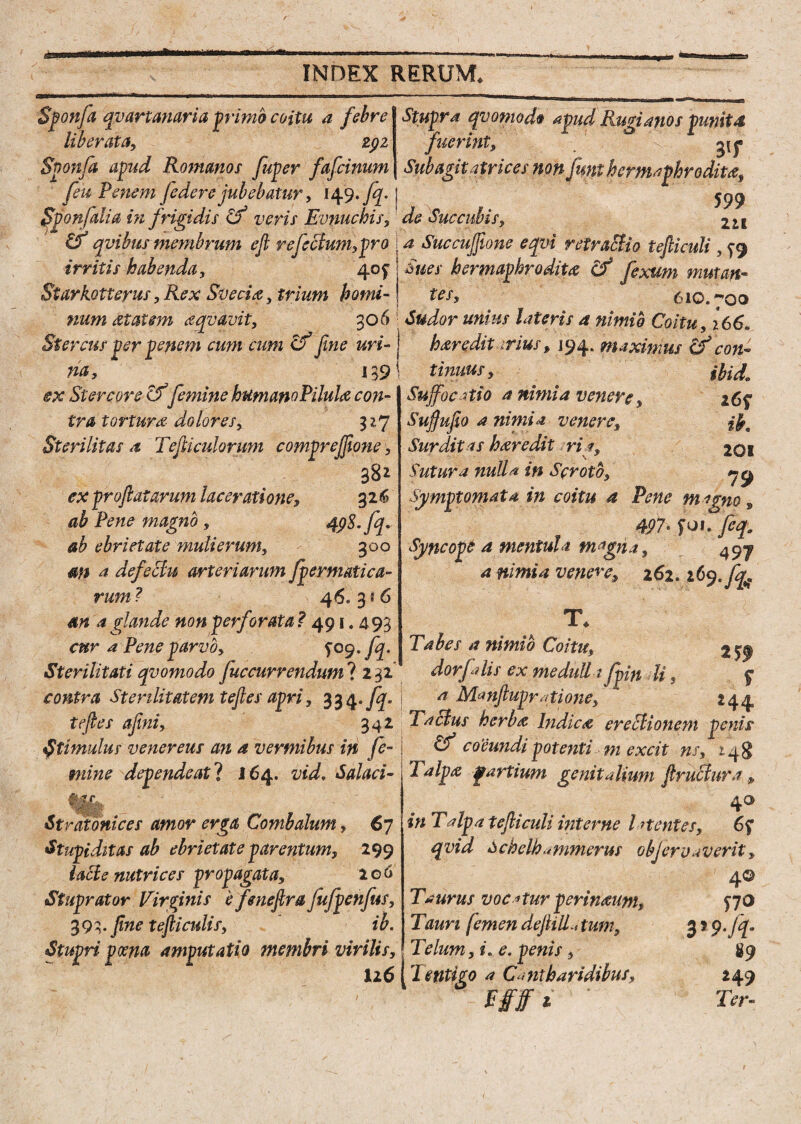 INDEX RERUM.
Sponsa qvartanaria primò coitu a febre
liberata, 292
Sponsa apud Romanos super fascinum
seu Penem sedere jubebatur, 149. sq.
Sponsalia in frigidis & veris Evnuchis,
& qvibus membrum est resectum, pro
irritis habenda, 405
Starkotterus, Rex Sveciæ, trium homi-
num ætatem æqvavit, 306
Stercus per penem cum cum & sine uri-
na, 139
ex Stercore & semine humano Pilulæ con-
tra torturæ dolores, 327
Sterilitas a Testiculorum compressione,
382
ex prostatarum laceratione, 326
ab Pene magnò, 498. sq.
ab ebrietate mulierum, 300
an a defectu arteriarum spermatica-
rum? 46. 316
an a glande non perforata? 491. 493
cur a Pene parvò, 509. sq.
Sterilitati qvomodo succurrendum? 232
contra Sterilitatem testes apri, 334. sq.
testes asini, 342
Stimulus venereus an a vermibus in se-
mine dependeat? 164. vid. Salaci-
tas.
Stratonices amor erga Combalum, 67
Stupiditas ab ebrietate parentum, 299
lacte nutrices propagata, 206
Stuprator Virginis è fenestra suspensus,
393. sine testiculis, ib.
Stupri pœna amputatio membri virilis,
126
Stupra qvomodo apud Rugianos punita
fuerint, 315
Subagitatrices non sunt hermaphroditæ,
599
de Succubis, 221
a Succussione eqvi retractio testiculi, 59
Sues hermaphroditæ & sexum mutan-
tes, 610. 700
Sudor unius lateris a nimiò Coitu, 266.
hæreditarius, 194. maximus & con-
tinuus, ibid.
Suffocatio a nimia venere, 265
Suffusio a nimia venere, ib.
Surditas hæreditaria, 201
Sutura nulla in Scrotò, 79
Symptomata in coitu a Pene magno,
497. 501. seq.
Syncope a mentula magna, 497
a nimia venere, 262. 269. sq.
T.
Tabes a nimiò Coitu, 259
dorsalis ex medulla spinali, 5
a Manstupratione, 244
Tactus herbæ Indicæ erectionem penis
& coëundi potentiam excitans, 248
Talpæ partium genitalium structura,
40
in Talpa testiculi interne latentes, 65
qvid Schelhammerus observaverit,
40
Taurus vocatur perinæum, 570
Tauri semen destillatum, 329. sq.
Telum, i. e. penis, 89
Tentigo a Cantharidibus, 249
Ffff 2 Ter-